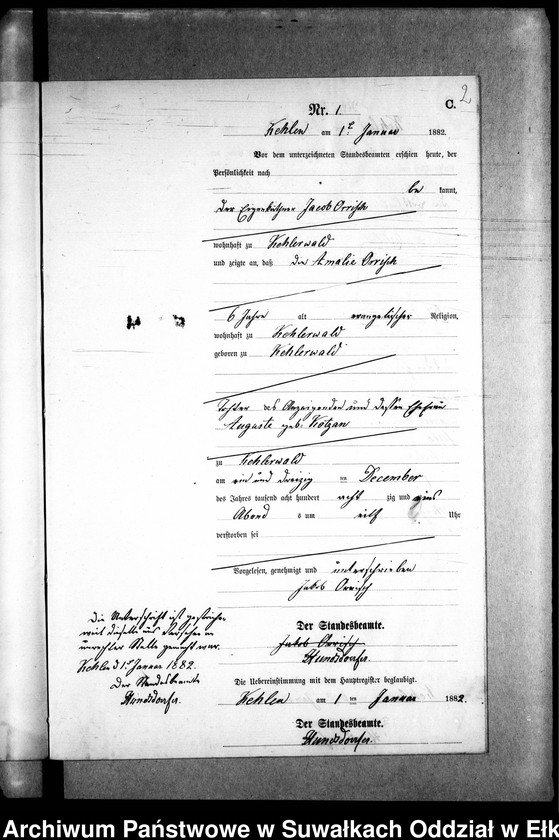 2
Nr. 1. C.
Kehlen am 1t Januar 1882.
Vor dem unterzeichneten Standesbeamten erschien heute, der
Persönlichkeit nach
be kannt,
der Eigenkäthner Jacob Orrisch
wohnhaft zu Kehlerwald
und zeigte an, daß die Amalie Orrisch
6 Jahre alt evangelischer Religion,
wohnhaft zu Kehlerwald
geboren zu Kehlerwald
Tochter des Anzeigenden und dessen Ehefrau
Auguste geb. Kotzan
zu Kehlerwald
am ein und dreizig ten December
des Jahres tausend acht hundert acht zig und eins
Abend s um Uhr
verstorben sei
Vorgelesen, genehmigt und unterschrieben
Jakob Orrisch
Der Standesbeamte.
Jakob Orrisch
Hundsdörfer.
Die Unterschrift ist gestrichen
weil dieselbe aus Versehen an
unrechter Stelle gemacht war.
Kehlen d 1t Januar 1882.
Der Standesbeamte
Hundsdörfer.
Die Uebereinstimmung mit dem Hauptregister beglaubigt.
Kehlen am 1 ten Januar 1882.
Der Standesbeamte.
Hundsdörfer.
Archiwum Państwowe w Suwałkach Oddział w Ełk